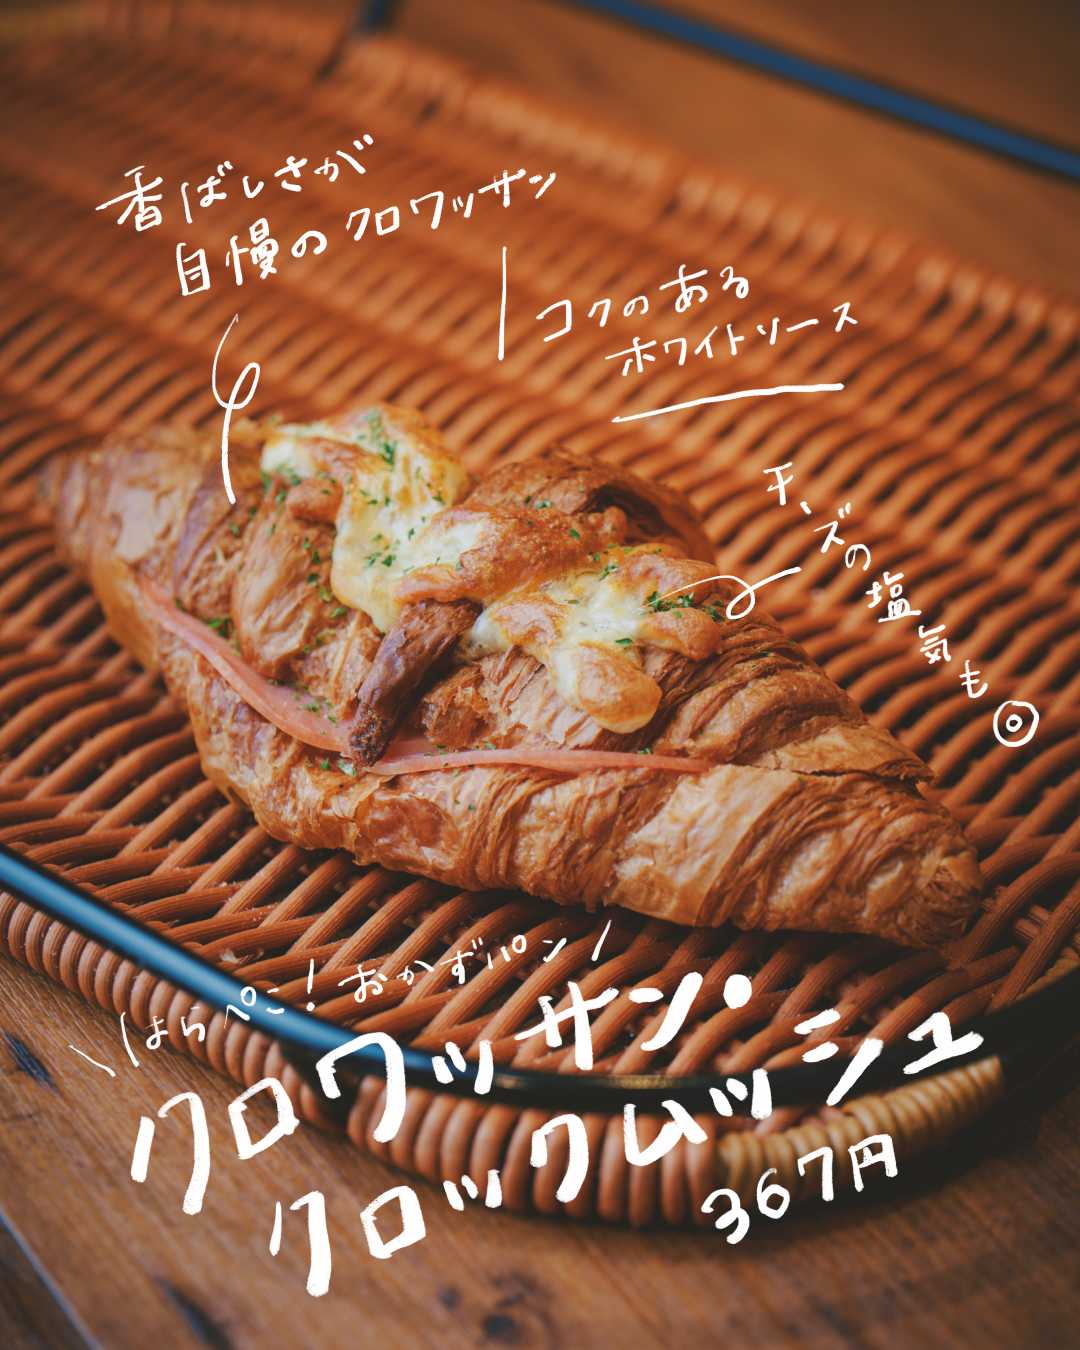 香ばしさが
自慢のクロワッサン
コクのある
ホワイトソース
チーズの塩気も◎
\はらぺこ！おかずパン/
クロワッサン・
クロックムッシュ
367円